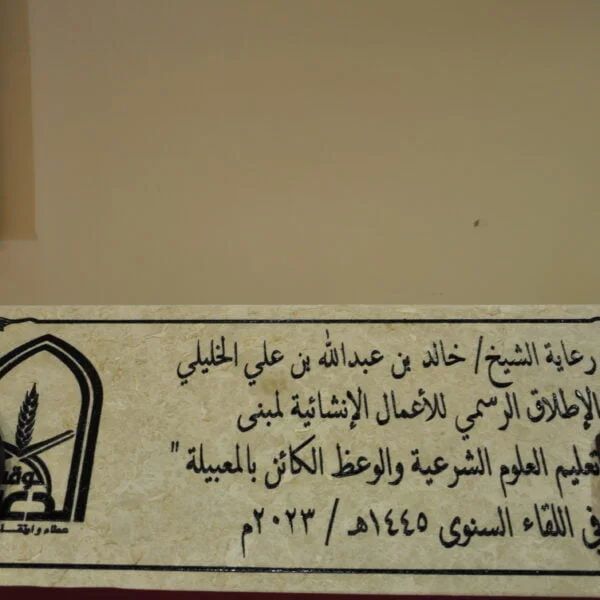 رعاية الشيخ/ خالد بن عبدالله بن علي الخليلي
الإطلاق الرسمي للأعمال الإنشائية لمبنى
تعليم العلوم الشرعية والوعظ الكائن بالمعبيلة "
في اللقاء السنوي ١٤٤٥هـ / ٢٠٢٣م